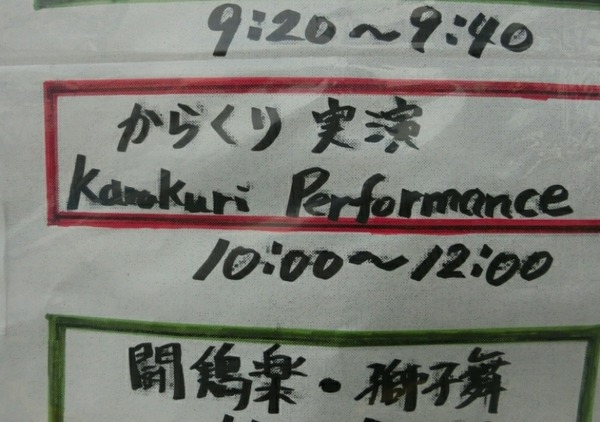 9:20〜9:40
からくり実演
Karakuri Performance
10:00〜12:00
闘鶏楽・獅子舞